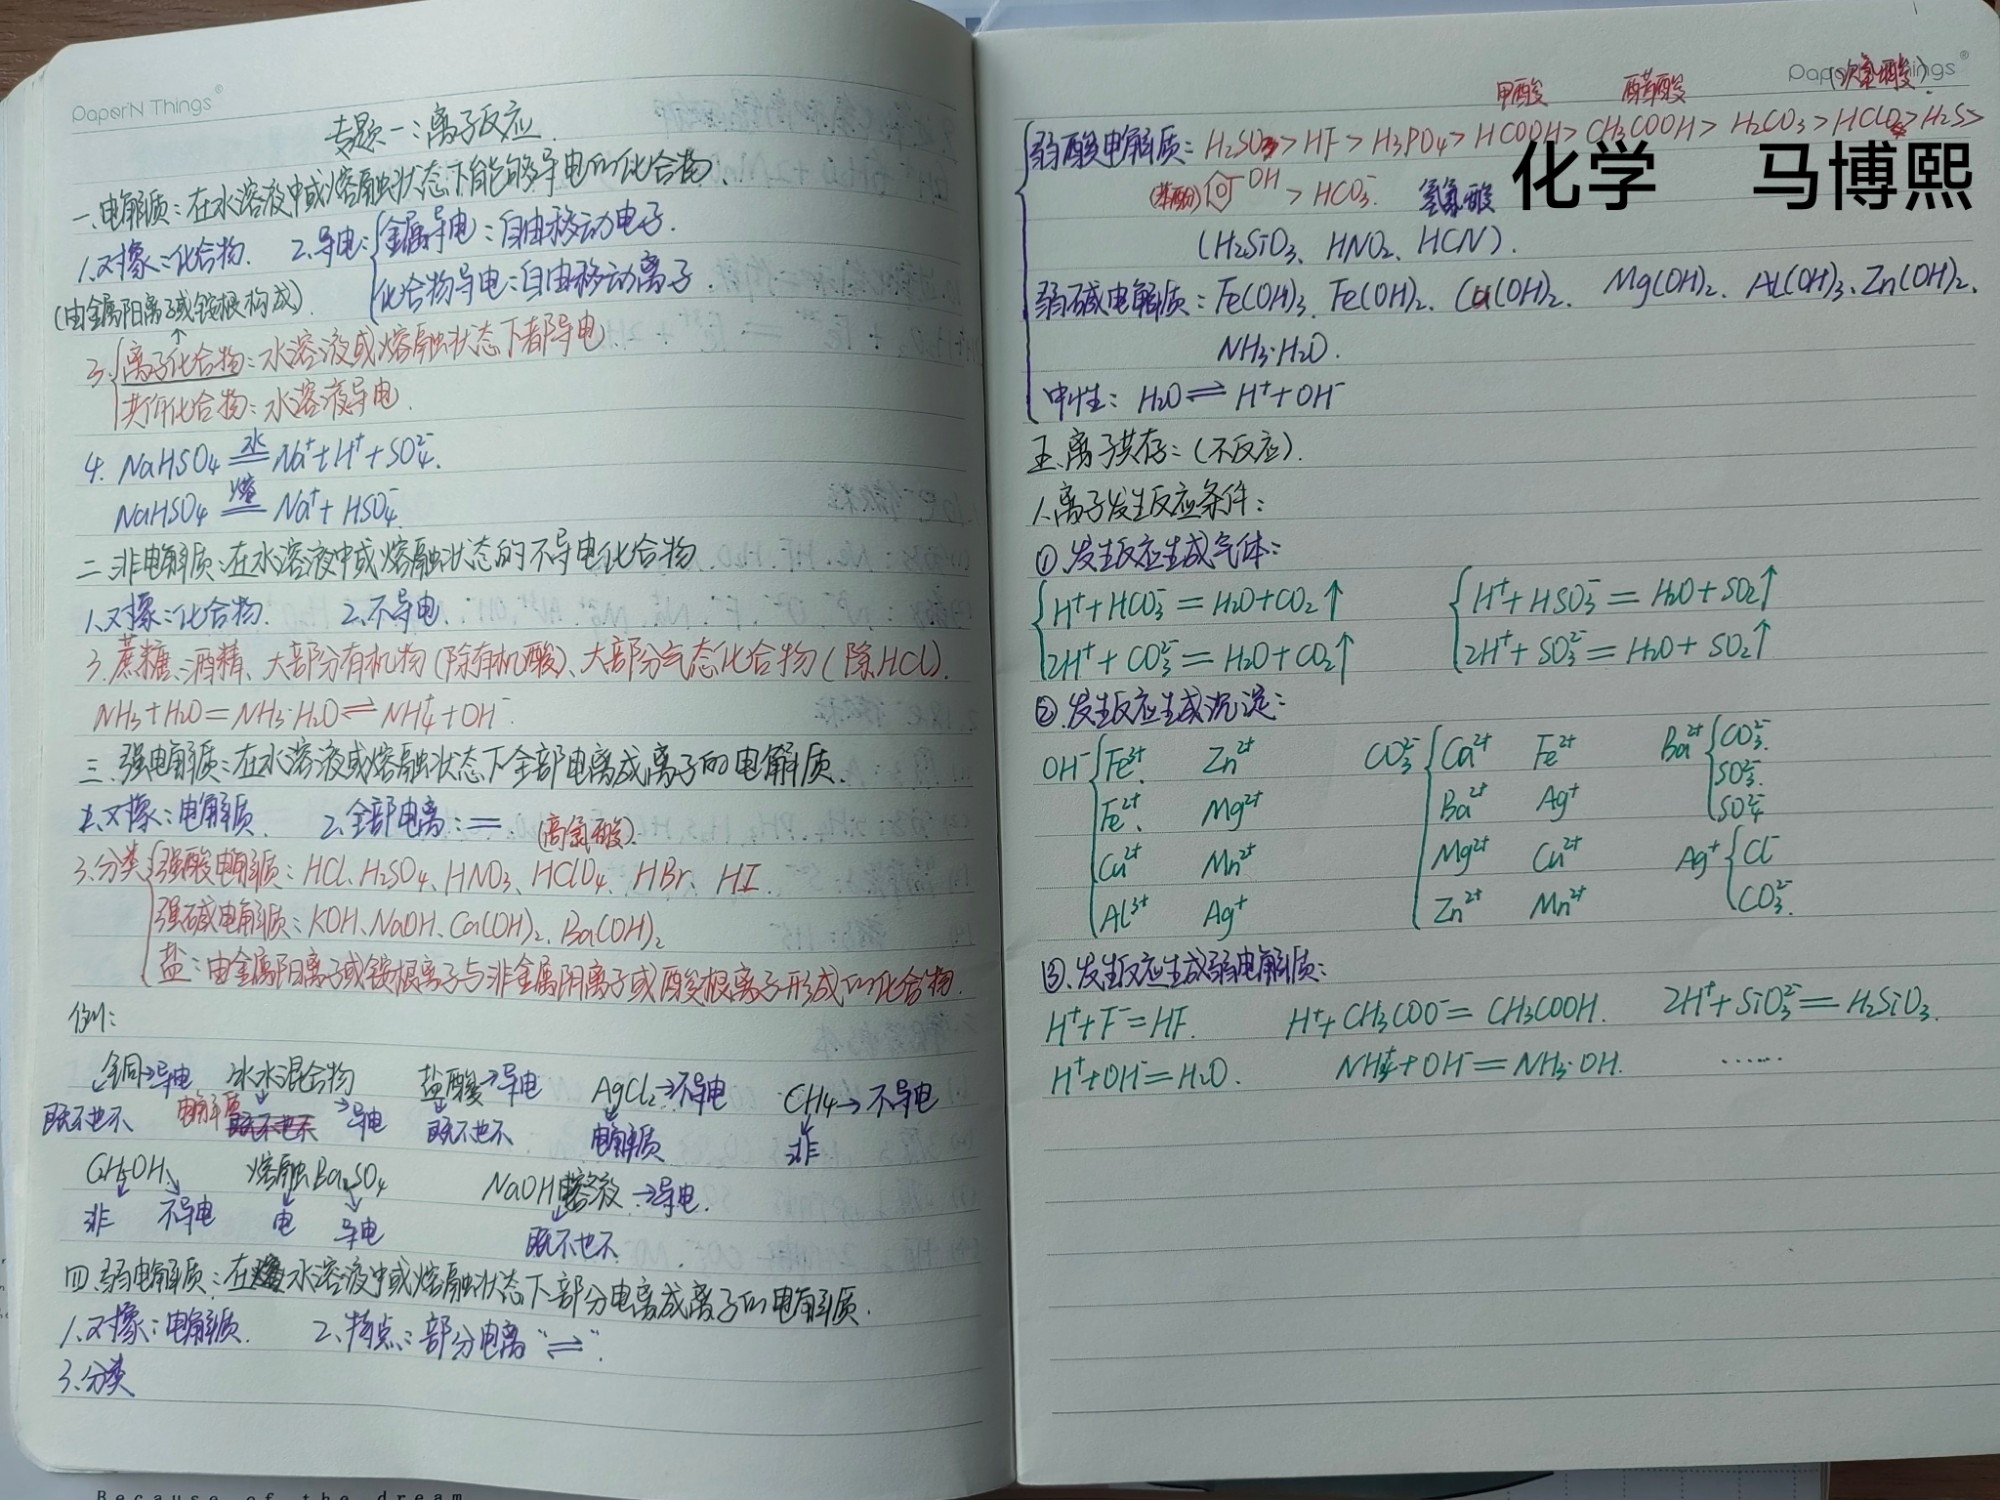 PaperN Things®
专题一：离子反应
一、电解质：在水溶液中或熔融状态下能够导电的化合物.
1、对象：化合物. 2、导电：{金属导电：自由移动电子.
化合物导电：自由移动离子.
(由金属阳离子或铵根构成).
3、{离子化合物：水溶液或熔融状态下都导电
共价化合物：水溶液导电.
4. NaHSO₄ =水= Na⁺+H⁺+SO₄²⁻.
NaHSO₄ =熔= Na⁺+HSO₄⁻.
二、非电解质：在水溶液中或熔融状态的不导电化合物
1、对象：化合物. 2、不导电.
3、蔗糖、酒精、大部分有机物(除有机酸)、大部分气态化合物(除HCl).
NH₃+H₂O=NH₃·H₂O⇌NH₄⁺+OH⁻.
三、强电解质：在水溶液或熔融状态下全部电离成离子的电解质.
1、对象：电解质. 2、全部电离：=. (高氯酸)
3、分类{强酸电解质：HCl、H₂SO₄、HNO₃、HClO₄、HBr、HI.
强碱电解质：KOH、NaOH、Ca(OH)₂、Ba(OH)₂
盐：由金属阳离子或铵根离子与非金属阴离子或酸根离子形成的化合物.
例：
铜→导电 冰水混合物 盐酸→导电 AgCl₂→不导电 CH₄→不导电
既不也不 电解质 →导电 既不也不 电解质 非
C₂H₅OH 熔融BaSO₄ NaOH溶液→导电.
非 不导电 电 导电 既不也不
四、弱电解质：在水溶液中或熔融状态下部分电离成离子的电解质.
1、对象：电解质. 2、特点：部分电离“⇌”.
3、分类
Because of the dream
PaperN Things®
甲酸 醋酸 (次氯酸)
{弱酸电解质：H₂SO₃>HF>H₃PO₄>HCOOH>CH₃COOH>H₂CO₃>HClO>H₂S>
化学 马博熙
(苯酚)⌬-OH>HCO₃⁻. 氢氰酸
(H₂SiO₃、HNO₂、HCN).
弱碱电解质：Fe(OH)₃、Fe(OH)₂、Cu(OH)₂、Mg(OH)₂、Al(OH)₃、Zn(OH)₂、
NH₃·H₂O.
中性：H₂O⇌H⁺+OH⁻
五、离子共存：(不反应).
1、离子发生反应条件：
①、发生反应生成气体：
{H⁺+HCO₃⁻=H₂O+CO₂↑ {H⁺+HSO₃⁻=H₂O+SO₂↑
2H⁺+CO₃²⁻=H₂O+CO₂↑ 2H⁺+SO₃²⁻=H₂O+SO₂↑
②、发生反应生成沉淀：
OH⁻{Fe³⁺、 Zn²⁺ CO₃²⁻{Ca²⁺ Fe²⁺ Ba²⁺{CO₃²⁻.
SO₃²⁻.
Fe²⁺、 Mg²⁺ Ba²⁺ Ag⁺ SO₄²⁻
Cu²⁺ Mn²⁺ Mg²⁺ Cu²⁺ Ag⁺{Cl⁻
Al³⁺ Ag⁺ Zn²⁺ Mn²⁺ CO₃²⁻.
③、发生反应生成弱电解质：
H⁺+F⁻=HF. H⁺+CH₃COO⁻=CH₃COOH. 2H⁺+SiO₃²⁻=H₂SiO₃.
H⁺+OH⁻=H₂O. NH₄⁺+OH⁻=NH₃·OH. ······